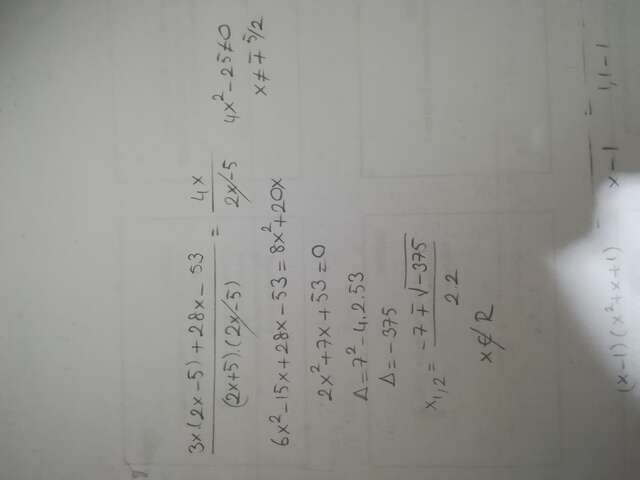 3x.(2x-5)+28x-53 / (2x+5).(2x-5) = 4x / 2x-5   4x²-25≠0
x≠∓5/2
6x²-15x+28x-53=8x²+20x
2x²+7x+53=0
Δ=7²-4.2.53
Δ=-375
x1,2=-7∓√-375 / 2.2
x∉R
(x-1)(x²+x+1)
x-1
1,1-1